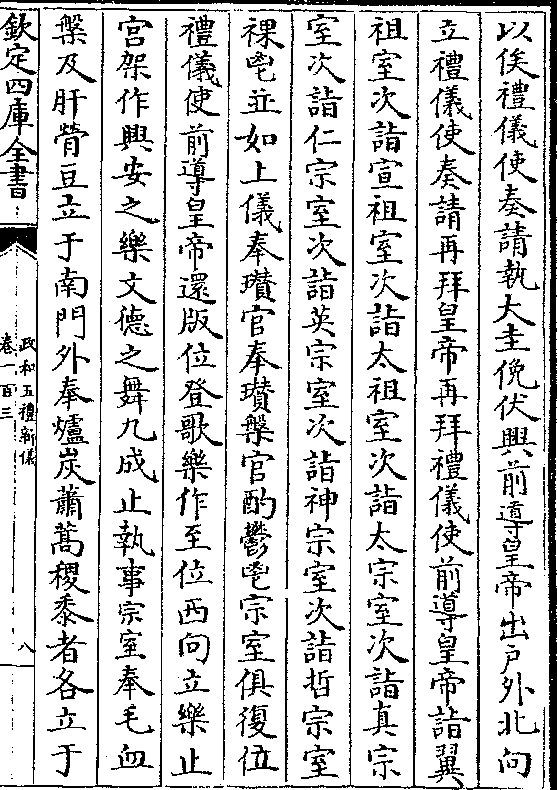 以俟禮儀使奏請執大圭俛伏興前導皇帝出戶外北向
立禮儀使奏請再拜皇帝再拜禮儀使前導皇帝詣翼
祖室次詣宣祖室次詣太祖室次詣太宗室次詣真宗
室次詣仁宗室次詣英宗室次詣神宗室次詣哲宗室
祼鬯並如上儀奉瓚官奉瓚槃官酌鬱鬯宗室俱復位
禮儀使前導皇帝還版位登歌樂作至位西向立樂止
宮架作興安之樂文德之舞九成止執事宗室奉毛血
槃及肝膋豆立于南門外奉爐炭蕭蒿稷黍者各立于
欽定四庫全書
政和五禮新儀
卷一百三
八